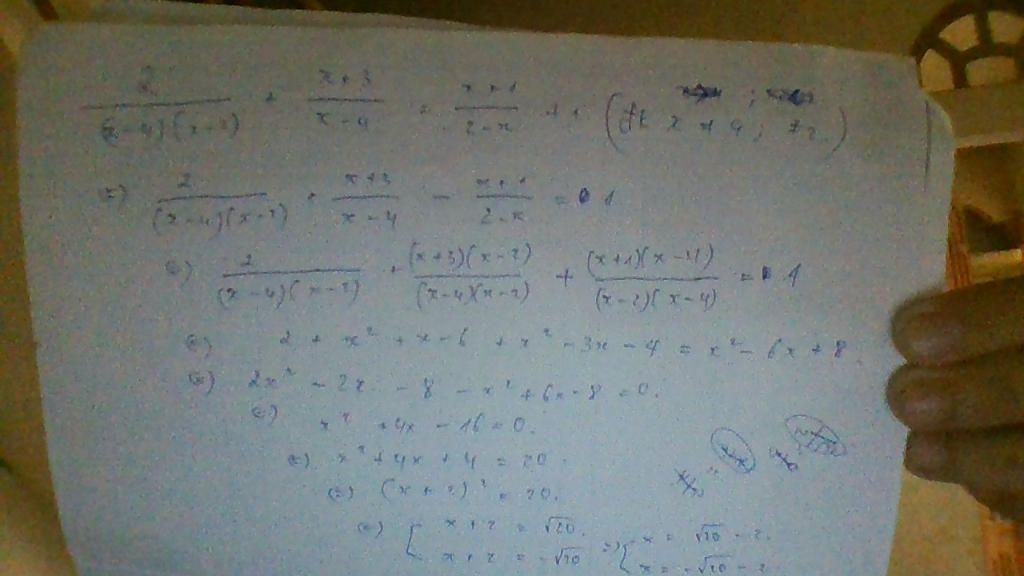 2/((x-4)(x-2)) + (x+3)/(x-4) = (x+1)/(2-x) + 1 (đk x ≠ 4; ≠ 2.)
<=) 2/((x-4)(x-2)) + (x+3)/(x-4) - (x+1)/(2-x) = 1
<=) 2/((x-4)(x-2)) + ((x+3)(x-2))/((x-4)(x-2)) + ((x+1)(x-4))/((x-2)(x-4)) = 1
<=) 2 + x² + x - 6 + x² - 3x - 4 = x² - 6x + 8.
<=) 2x² - 2x - 8 - x² + 6x - 8 = 0.
<=) x² + 4x - 16 = 0.
<=) x² + 4x + 4 = 20.
<=) (x+2)² = 20.
<=) [ x+2 = √20. <=) [ x = √20 - 2.
x+2 = -√20 x = -√20 - 2